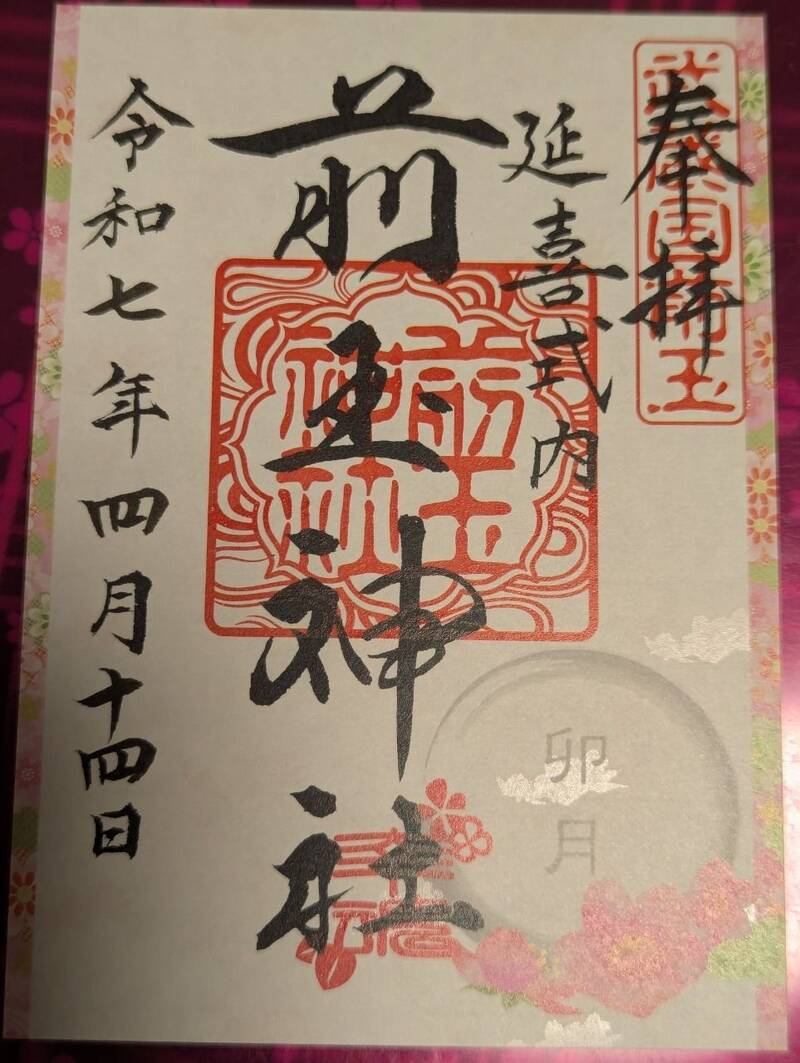 奉拝
武蔵国埼玉
延喜式内
前玉神社
前玉
神社
令和七年四月十四日
卯月